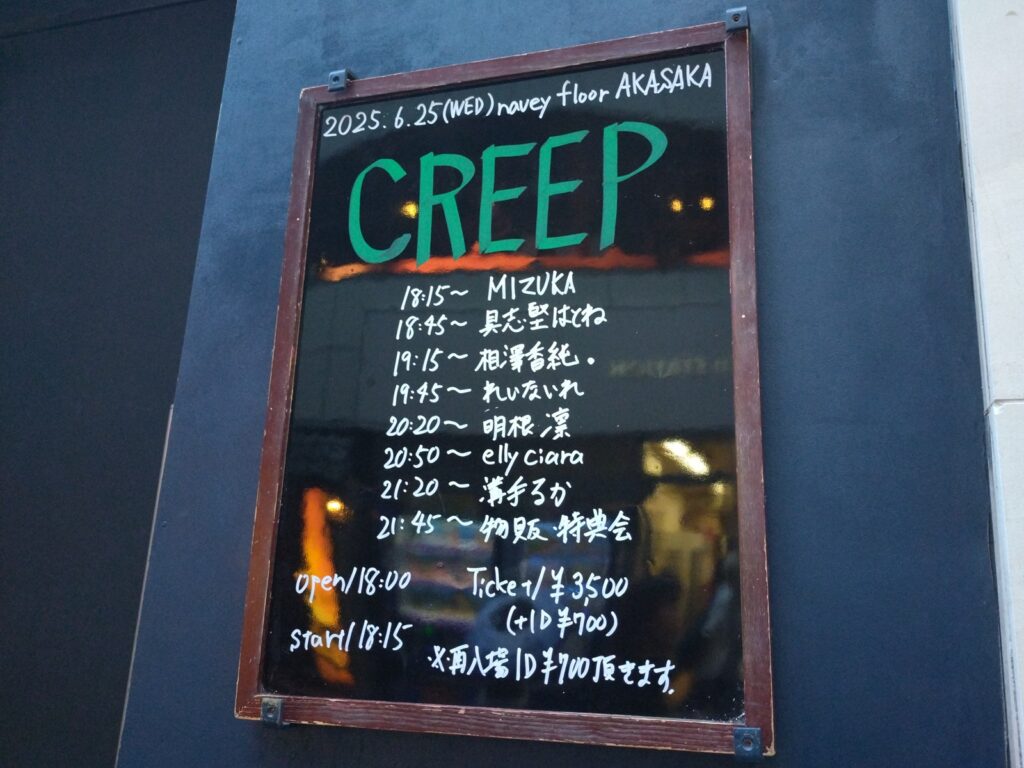 2025.6.25(WED) navey floor AKASAKA
CREEP
18:15〜 MIZUKA
18:45〜 具志堅はとね
19:15〜 相澤香純。
19:45〜 れいないれ
20:20〜 明根 凛
20:50〜 elly ciara
21:20〜 溝手るか
21:45〜 物販・特典会
open/18:00 Ticket/¥3,500
(+1D¥700)
start/18:15
※再入場1D¥700頂きます。